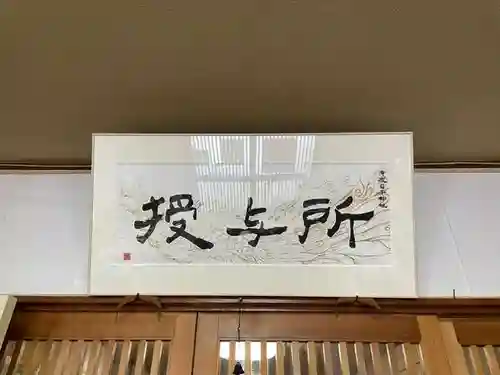 授与所